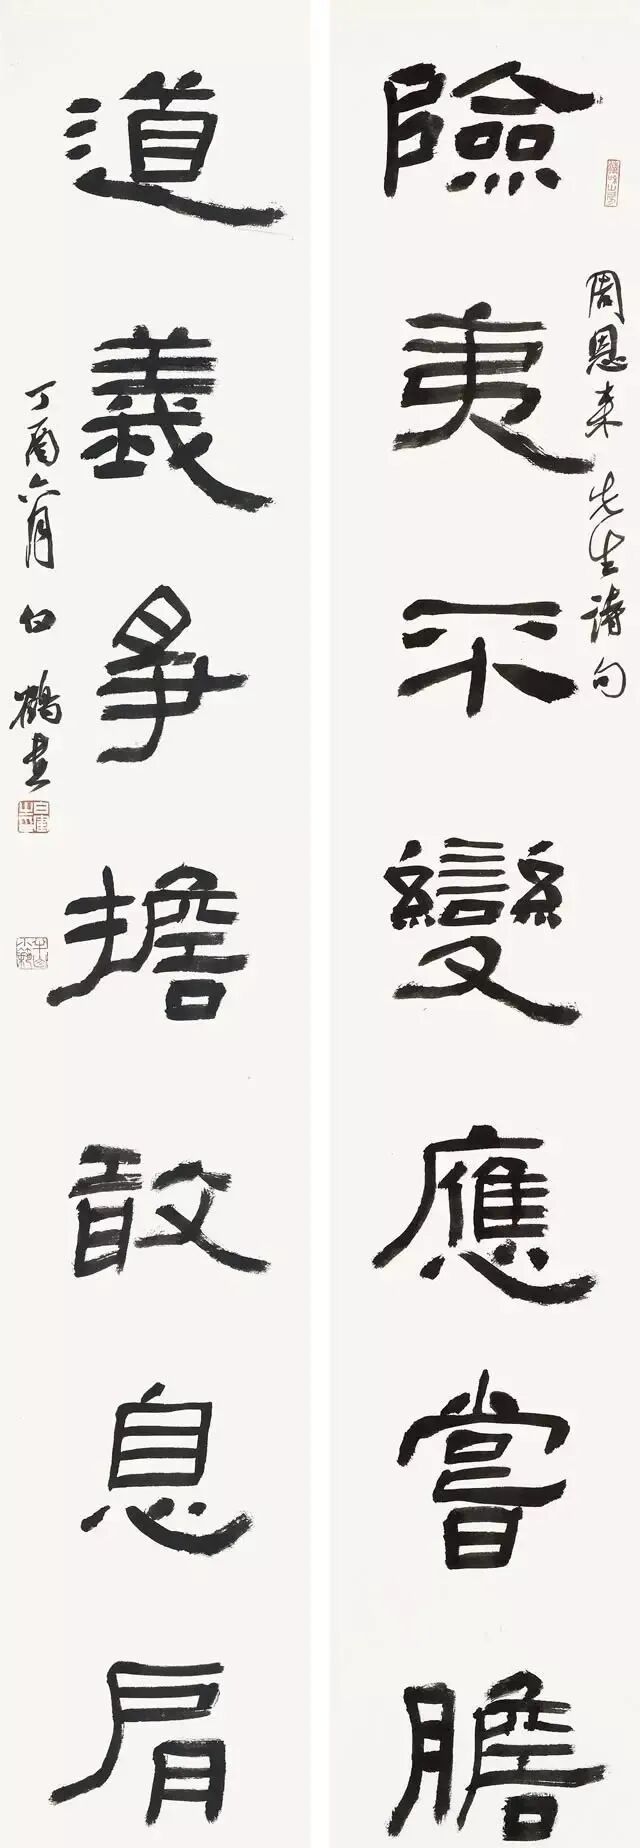 周恩来先生诗句
險夷不變應嘗膽
道義爭擔敢息肩
丁酉六月白鶴書